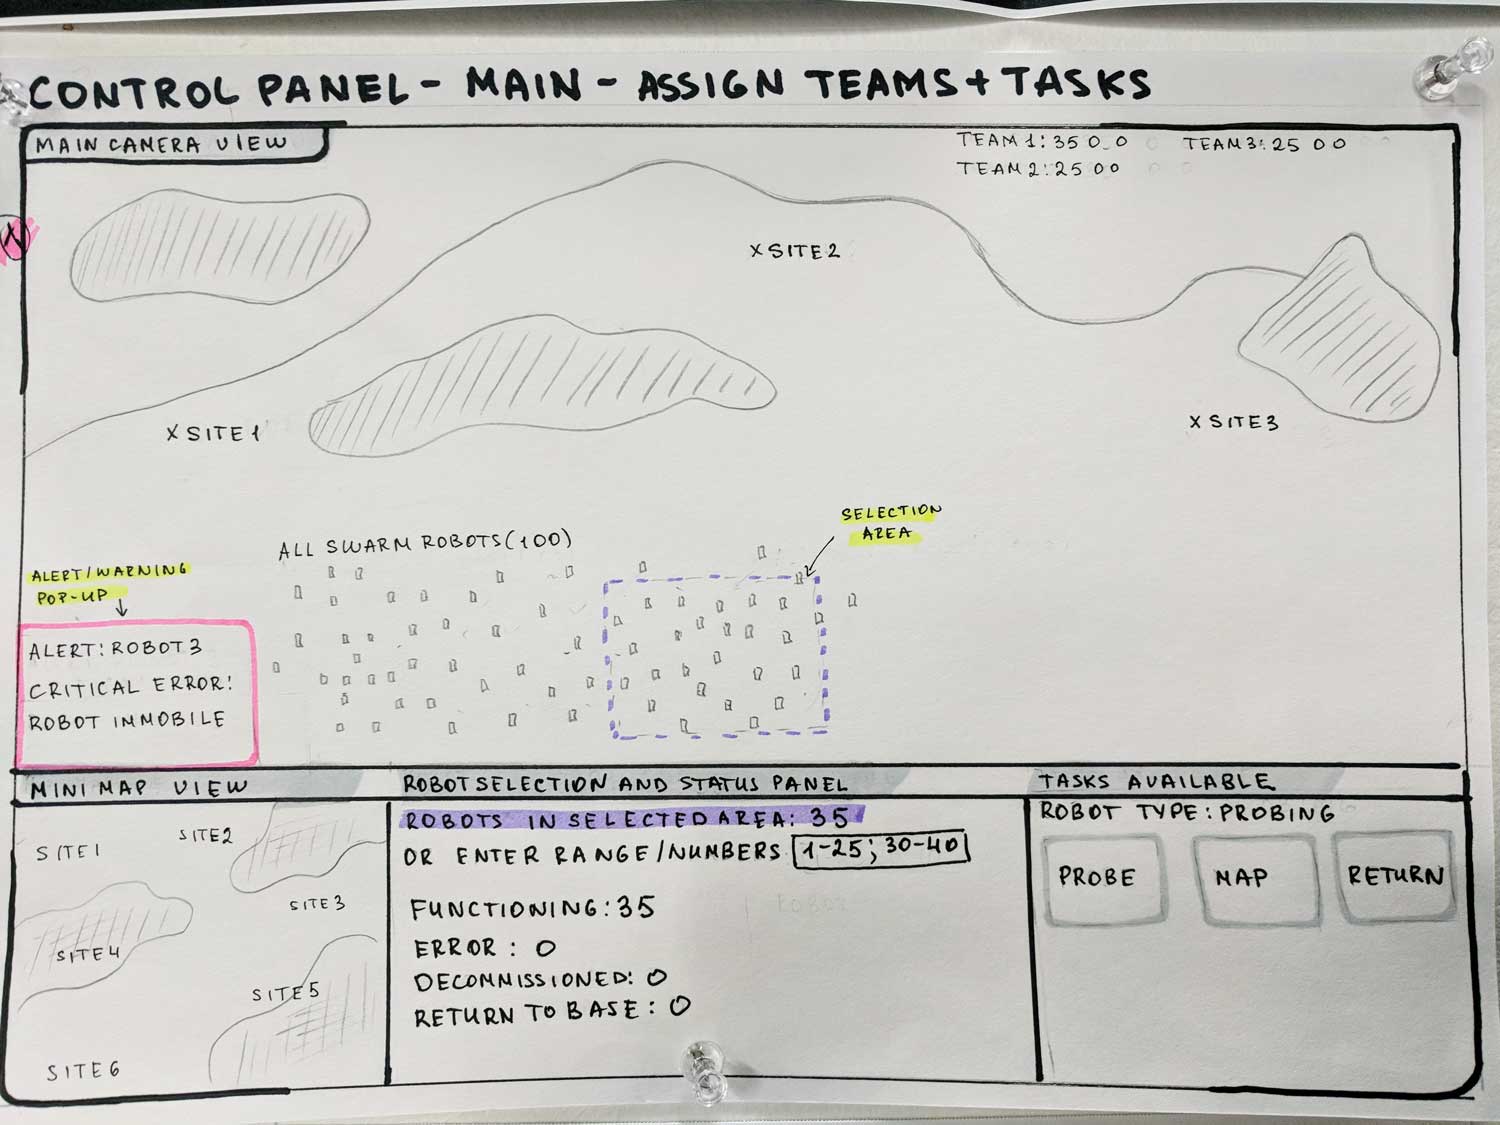 CONTROL PANEL - MAIN - ASSIGN TEAMS + TASKS
MAIN CAMERA VIEW
TEAM 1: 35 0 0
TEAM 3: 25 0 0
TEAM 2: 25 0 0
X SITE 2
X SITE 1
X SITE 3
SELECTION
AREA
ALL SWARM ROBOTS (100)
ALERT/WARNING
POP-UP
ALERT: ROBOT 3
CRITICAL ERROR!
ROBOT IMMOBILE
MINI MAP VIEW
SITE 2
SITE 1
SITE 3
SITE 4
SITE 5
SITE 6
ROBOT SELECTION AND STATUS PANEL
ROBOTS IN SELECTED AREA: 35
OR ENTER RANGE/NUMBERS 1-25; 30-40
FUNCTIONING: 35
ERROR: 0
DECOMMISSIONED: 0
RETURN TO BASE: 0
TASKS AVAILABLE
ROBOT TYPE: PROBING
PROBE
MAP
RETURN